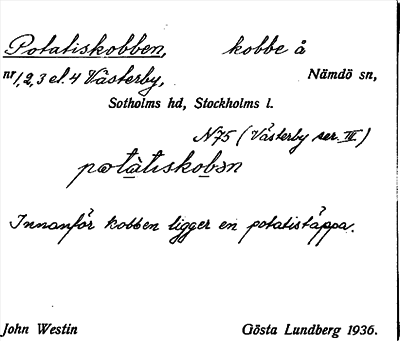 Potatiskobben, kobbe å
nr 1, 2, 3 el. 4 Västerby, Nämdö sn,
Sotholms hd, Stockholms l.
N75 (Västerby ser. III)
potàtɩskobən
Innanför kobben ligger en potatistäppa.
John Westin Gösta Lundberg 1936.